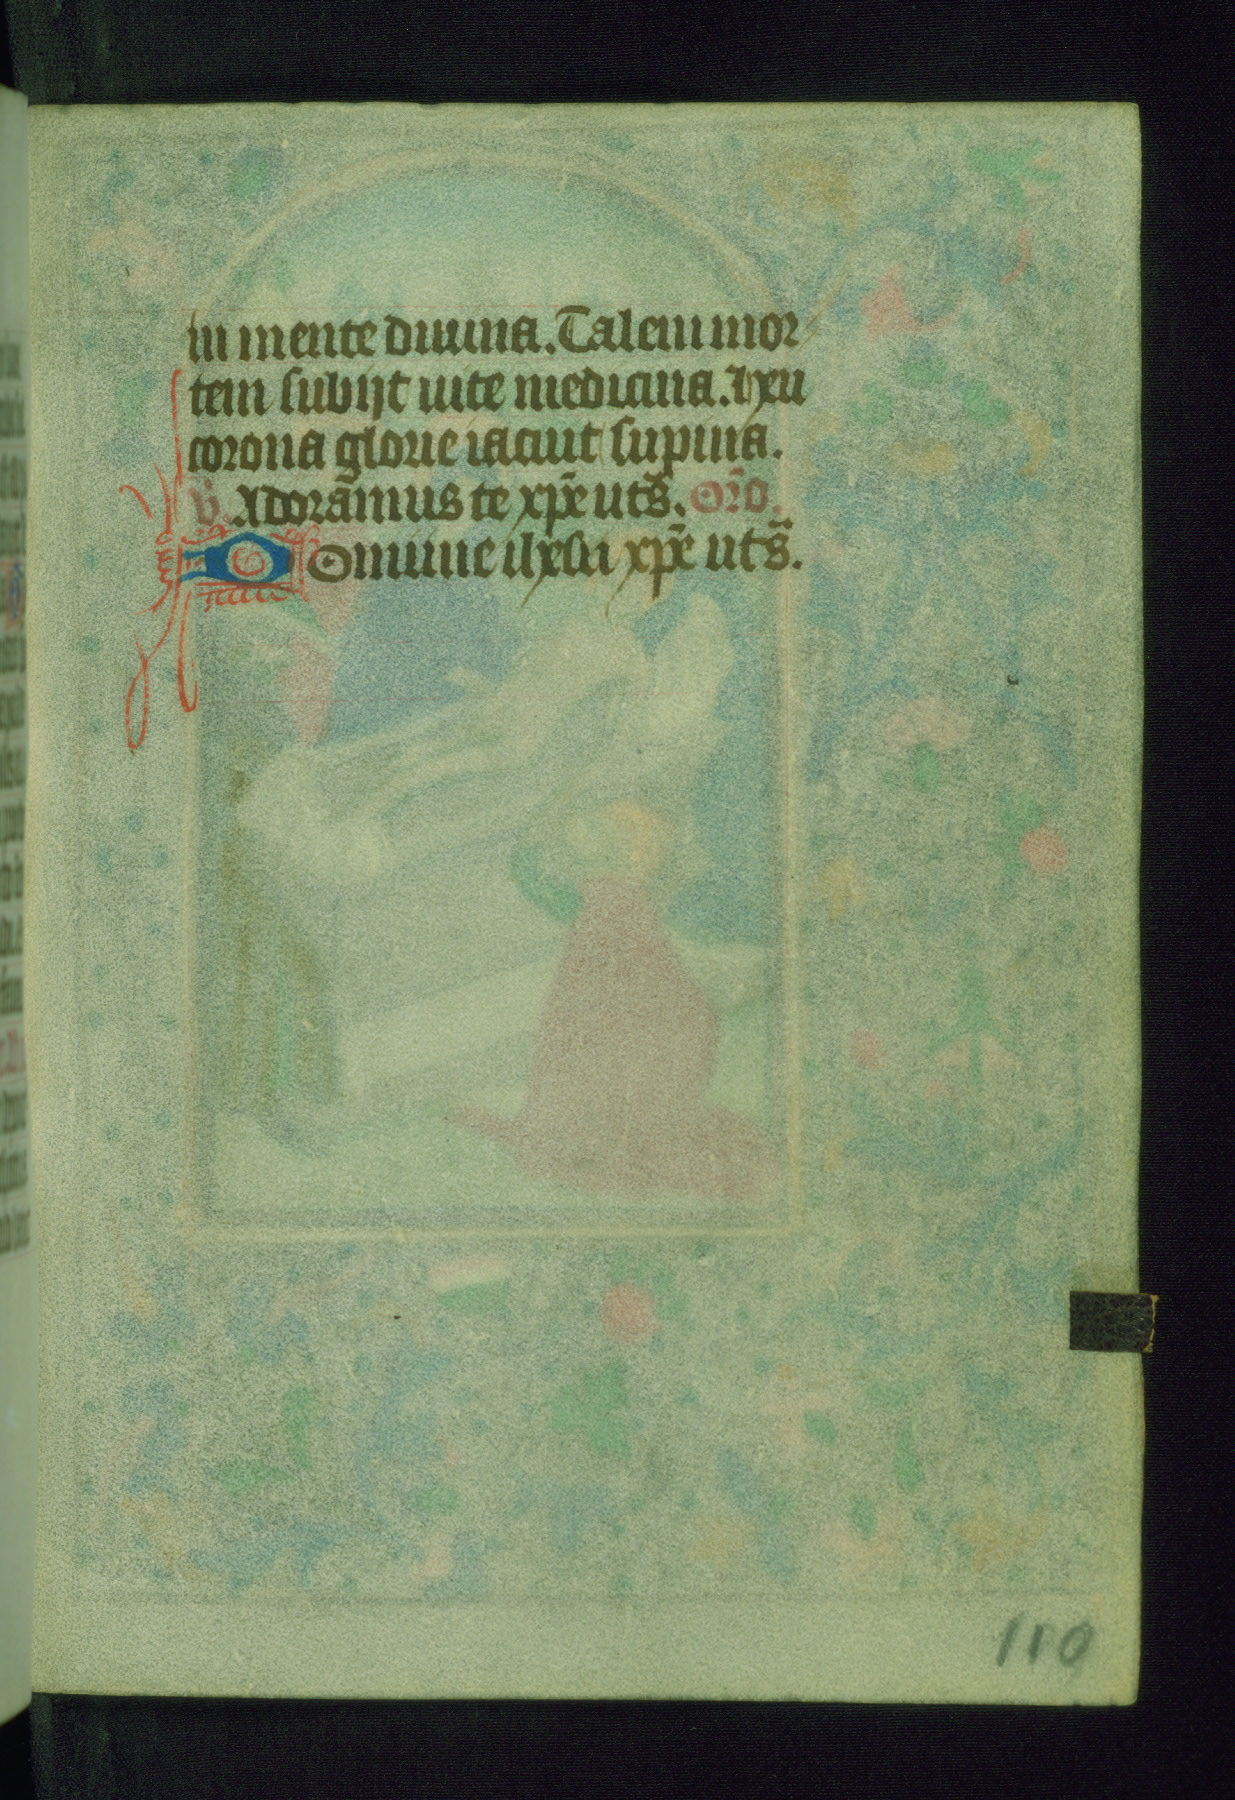 in mente diuina. Talem mor
tem subijt uite medicina. Heu
corona glorie iacuit supina.
V̄. Adoram̄us te xp̄e ut s̄. Or̄o.
Domine ihesu xp̄e ut s̄.
110